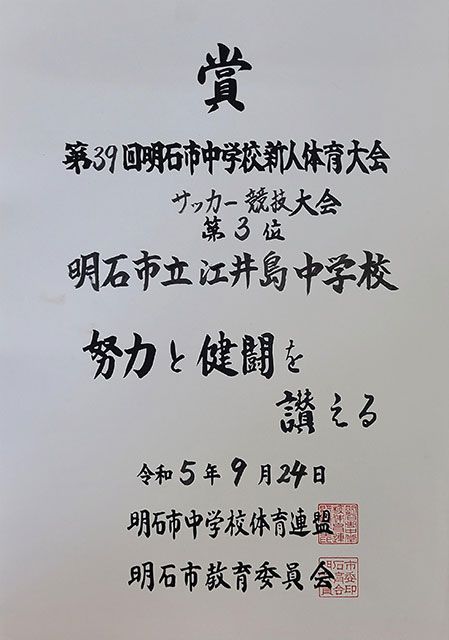 賞
第39回明石市中学校新人体育大会
サッカー競技大会
第3位
明石市立江井島中学校
努力と健闘を
讃える
令和5年9月24日
明石市中学校体育連盟
明石市教育委員会